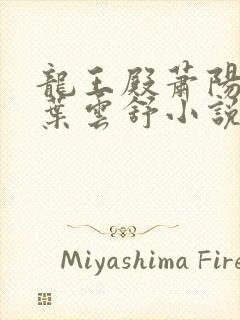 龍王殿蕭陽
葉雲舒小說
Miyashima Fire